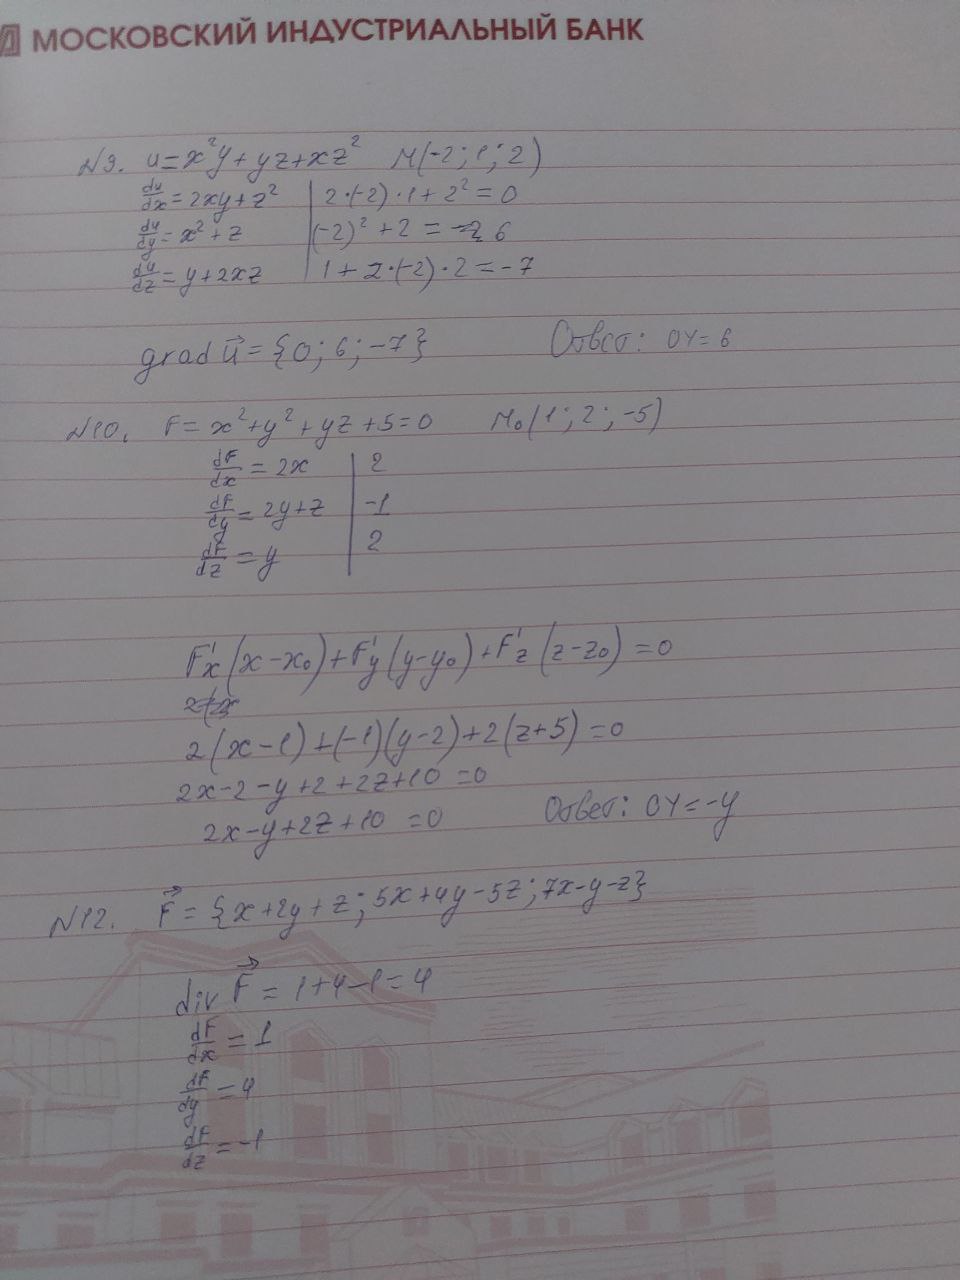 МОСКОВСКИЙ ИНДУСТРИАЛЬНЫЙ БАНК
№9. u=x²y+yz+xz² M(-2;1;2)
du/dx=2xy+z² | 2·(-2)·1+2²=0
du/dy=x²+z | (-2)²+2=6
du/dz=y+2xz | 1+2·(-2)·2=-7
grad u⃗={0;6;-7} Ответ: OY=6
№10. F=x²+y²+yz+5=0 M₀(1;2;-5)
dF/dx=2x | 2
dF/dy=2y+z | -1
dF/dz=y | 2
F'x(x-x₀)+F'y(y-y₀)+F'z(z-z₀)=0
2(x-1)+(-1)(y-2)+2(z+5)=0
2x-2-y+2+2z+10=0
2x-y+2z+10=0 Ответ: OY=-y
№12. F⃗={x+2y+z;5x+4y-5z;7x-y-z}
div F⃗=1+4-1=4
dF/dx=1
dF/dy=4
dF/dz=-1